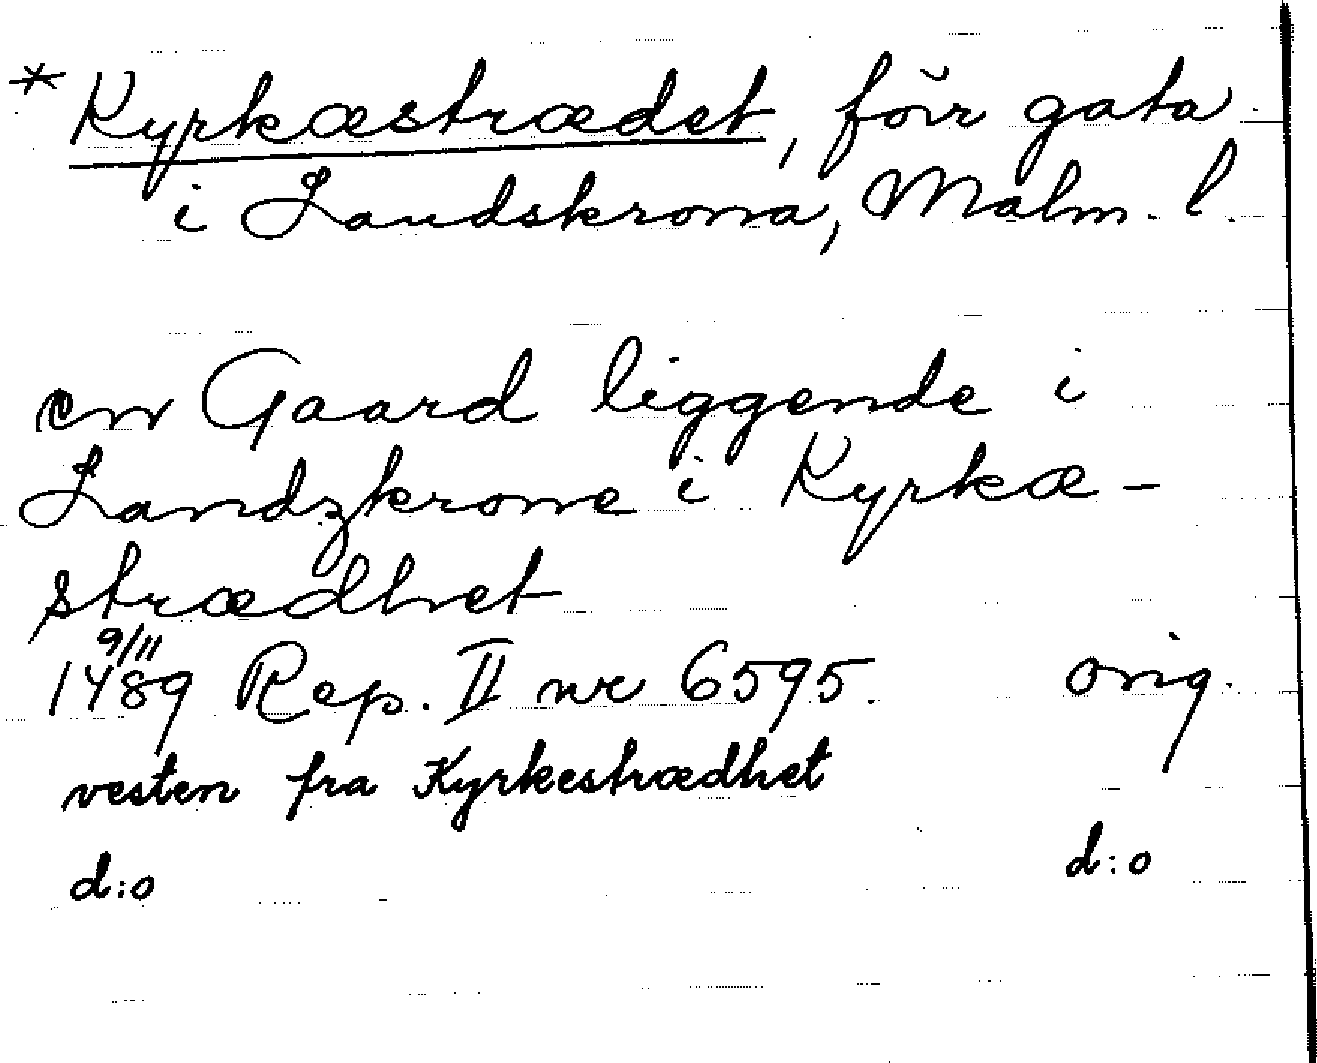 * Kyrkæstrædet, förr gata
i Landskrona, Malm. l.
en Gaard liggende i
Landzkrone i Kyrkæ-
strædhet
9/11
1489 Rep. II nr 6595. orig.
vesten fra Kyrkestrædhet
d:o d:o